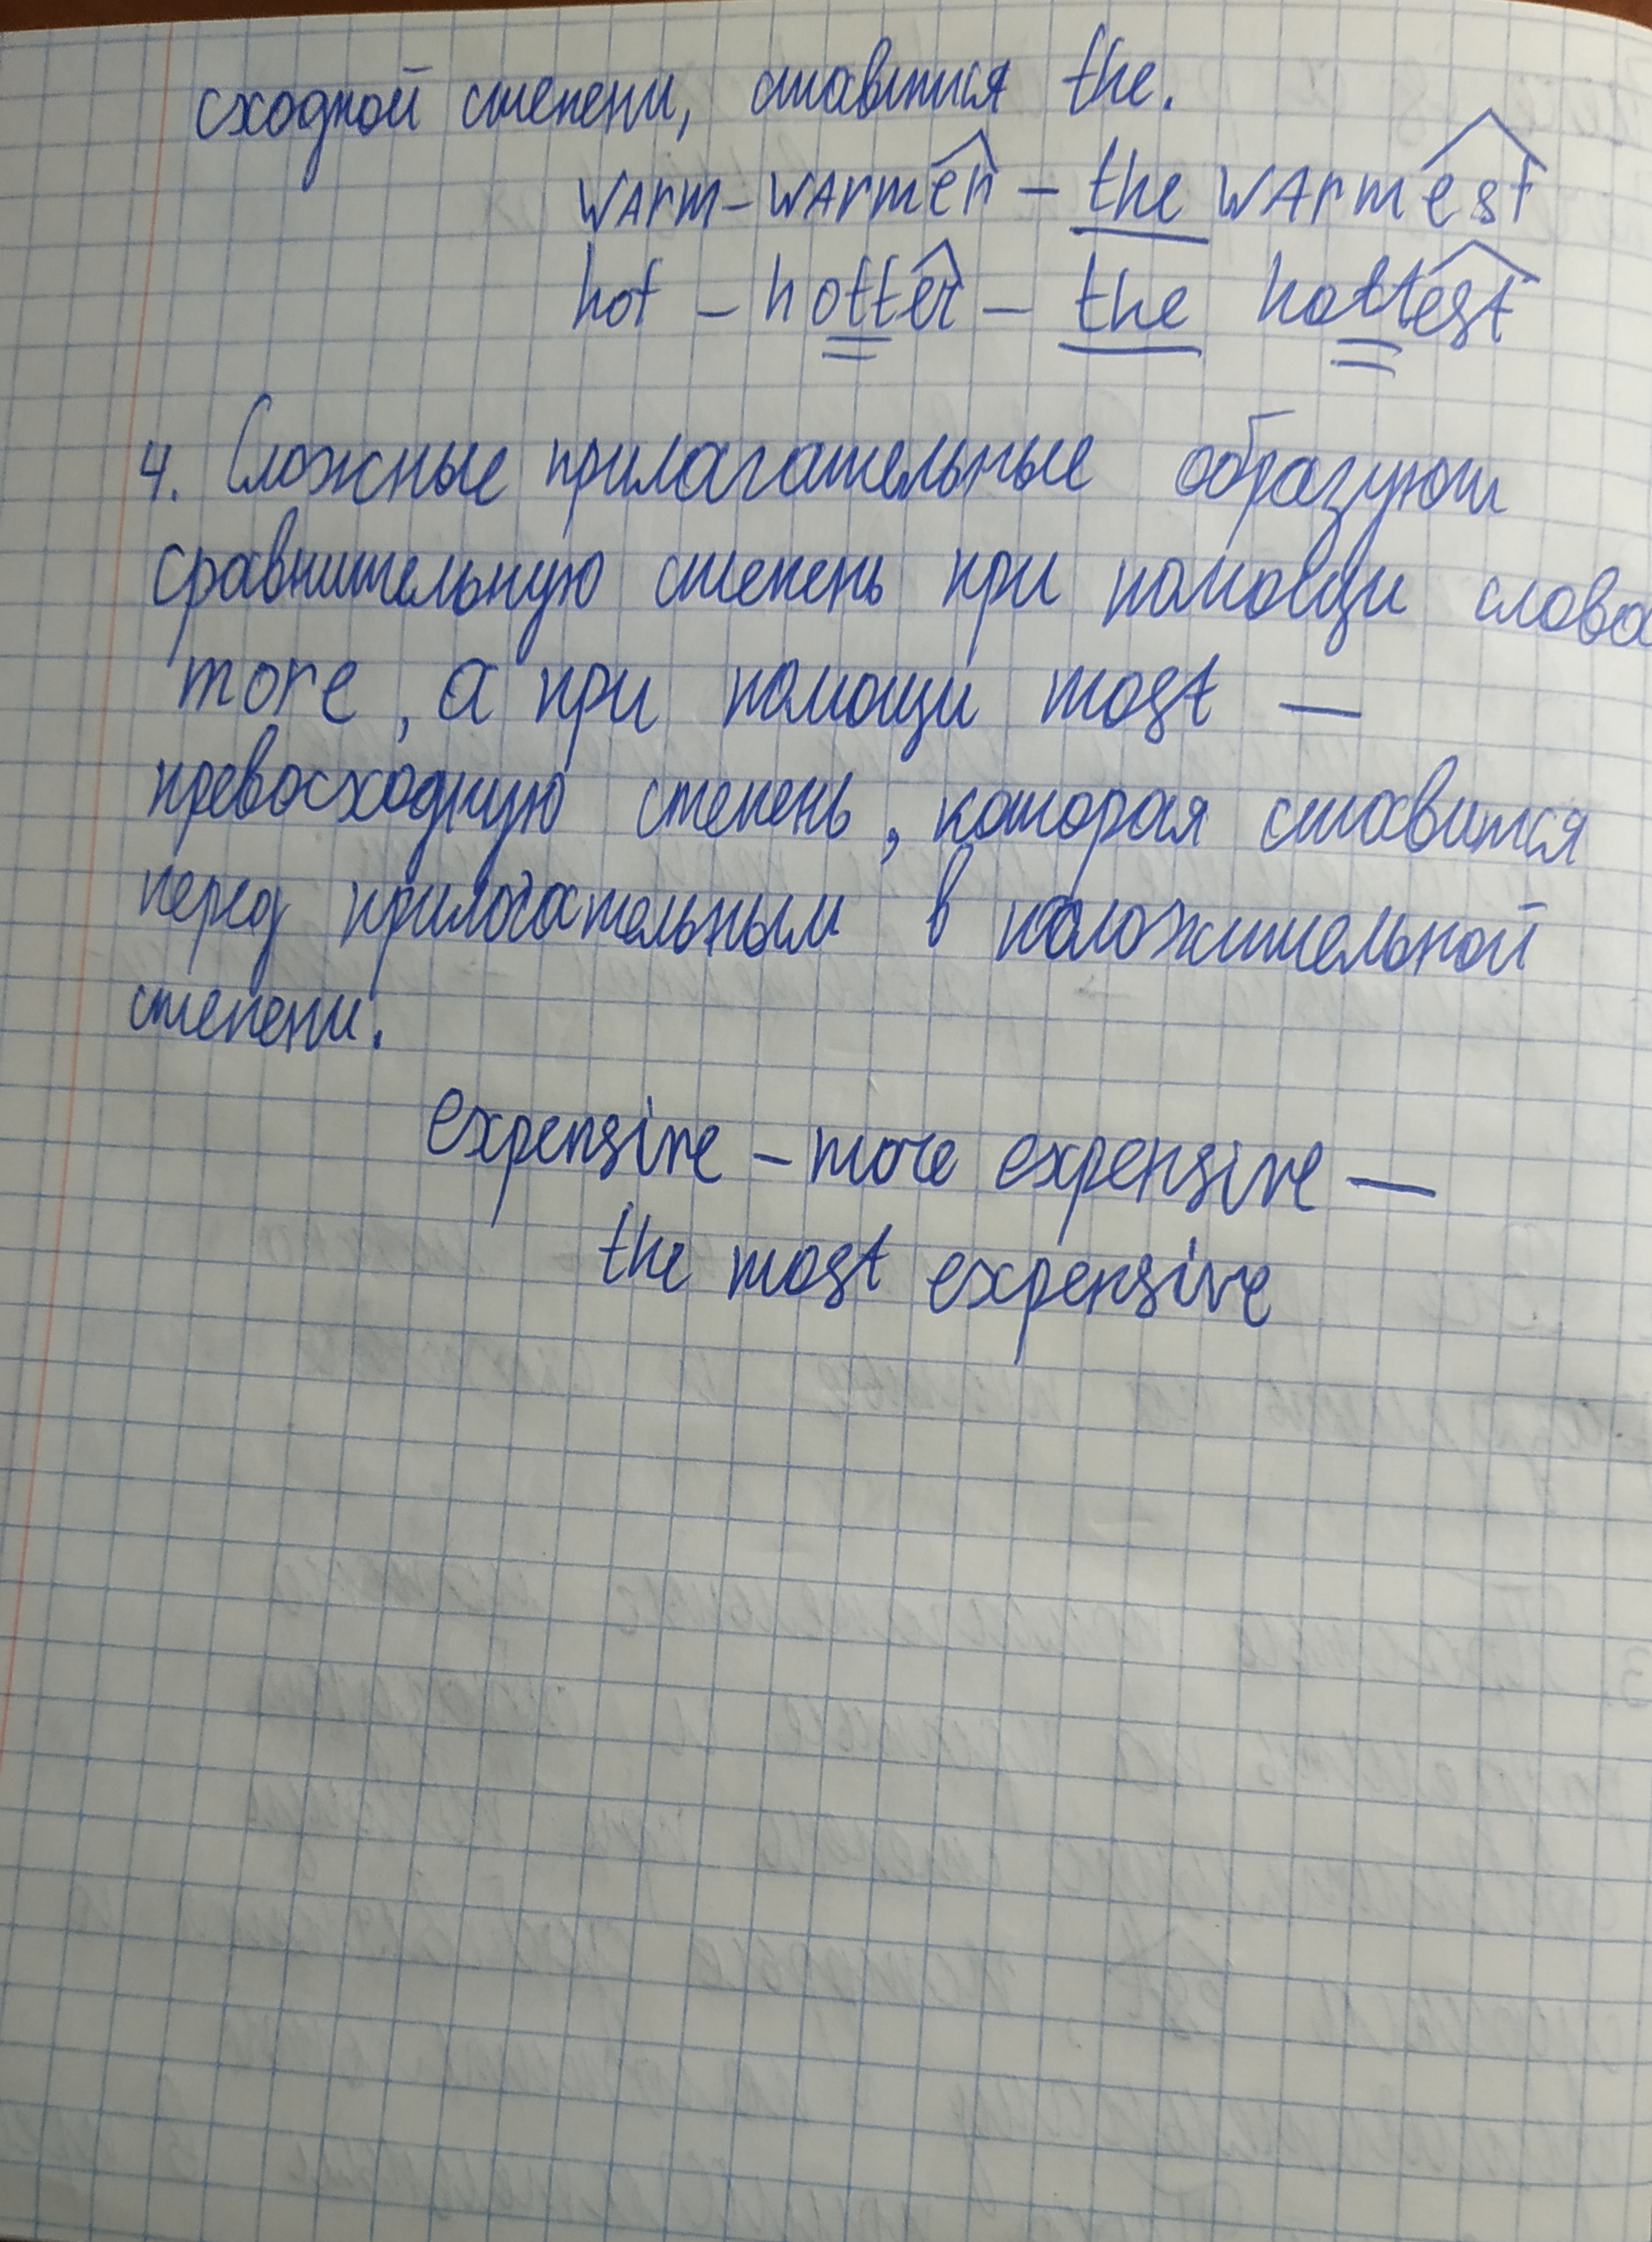 сходной степени, ставится the.
warm – warmer – the warmest
hot – hotter – the hottest
4. Сложные прилагательные образуют
сравнительную степень при помощи слова
more, а при помощи most —
превосходную степень, которая ставится
перед прилагательным в положительной
степени.
expensive – more expensive —
the most expensive